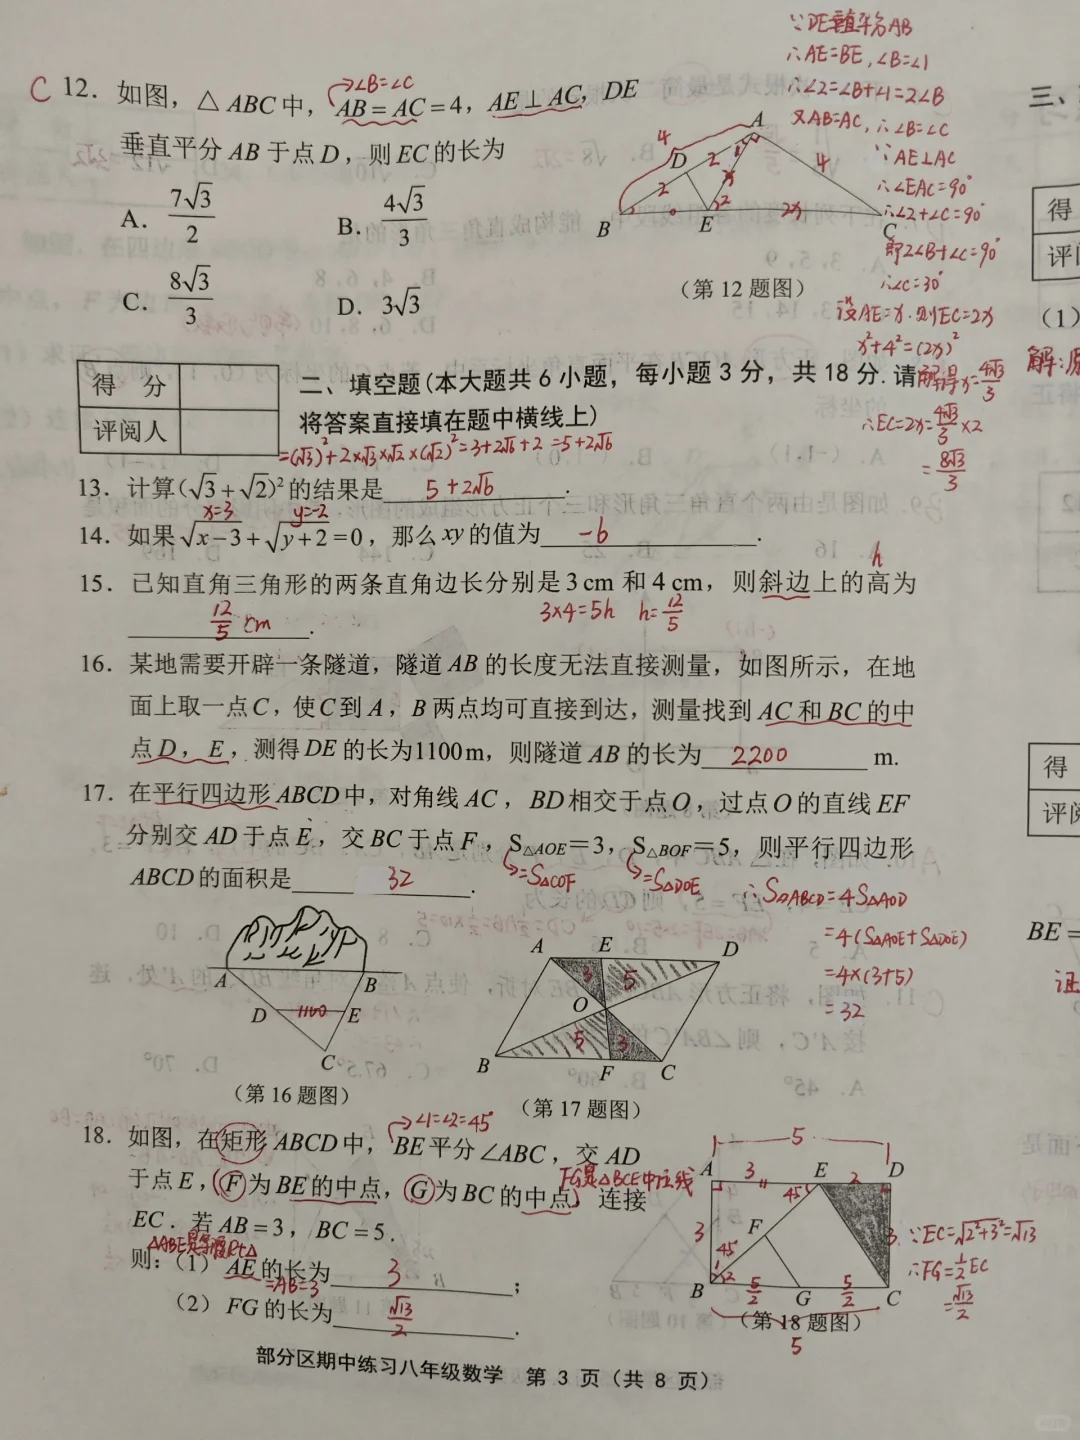 ∵DE垂直平分AB
∴AE=BE,∠B=∠1
∴∠2=∠B+∠1=2∠B
又AB=AC,∴∠B=∠C
∵AE⊥AC
∴∠EAC=90°
∴∠2+∠C=90°
即2∠B+∠C=90°
∴∠C=30°
设AE=x.则EC=2x
x²+4²=(2x)²
解得x=4√3/3
∴EC=2x=4√3/3×2
=8√3/3
→∠B=∠C
C 12. 如图，△ABC中，AB=AC=4，AE⊥AC，DE
垂直平分AB于点D，则EC的长为
A. 7√3/2 B. 4√3/3
C. 8√3/3 D. 3√3
A
4
D 2 1
2 x 4
B E 2 2x C
(第12题图)
得 分
评阅人
二、填空题(本大题共6小题，每小题3分，共18分.请
将答案直接填在题中横线上)
=(√3)²+2×√3×√2×(√2)²=3+2√6+2=5+2√6
13. 计算(√3+√2)²的结果是 5+2√6 .
x=3 y=-2
14. 如果√x-3+√y+2=0，那么xy的值为 -6 .
h
15. 已知直角三角形的两条直角边长分别是3cm和4cm，则斜边上的高为
12/5 cm .
3×4=5h h=12/5
16. 某地需要开辟一条隧道，隧道AB的长度无法直接测量，如图所示，在地
面上取一点C，使C到A，B两点均可直接到达，测量找到AC和BC的中
点D，E，测得DE的长为1100m，则隧道AB的长为 2200 m.
17. 在平行四边形ABCD中，对角线AC，BD相交于点O，过点O的直线EF
分别交AD于点E，交BC于点F，S△AOE=3，S△BOF=5，则平行四边形
=S△COF =S△DOE
ABCD的面积是 32 .
∴S▱ABCD=4S△AOD
=4(S△AOE+S△DOE)
=4×(3+5)
=32
A B
D 1100 E
C
(第16题图)
A E D
3 5
O
5 3
B F C
(第17题图)
→∠1=∠2=45°
18. 如图，在矩形ABCD中，BE平分∠ABC，交AD
于点E，(F为BE的中点，G为BC的中点)连接
FG是△BCE中位线
EC．若AB=3，BC=5．
△ABE是等腰Rt△
则：(1) AE的长为 3 ；
=AB=3
(2) FG的长为 √13/2 .
5
A 3 E 2 D
45°
3 F 3
45°
1
2
B 5/2 G 5/2 C
5
(第18题图)
∵EC=√2²+3²=√13
∴FG=1/2EC
=√13/2
部分区期中练习八年级数学 第 3 页（共 8 页）
三、
得
评阅
(1)
解:原
得
评阅
BE=
证